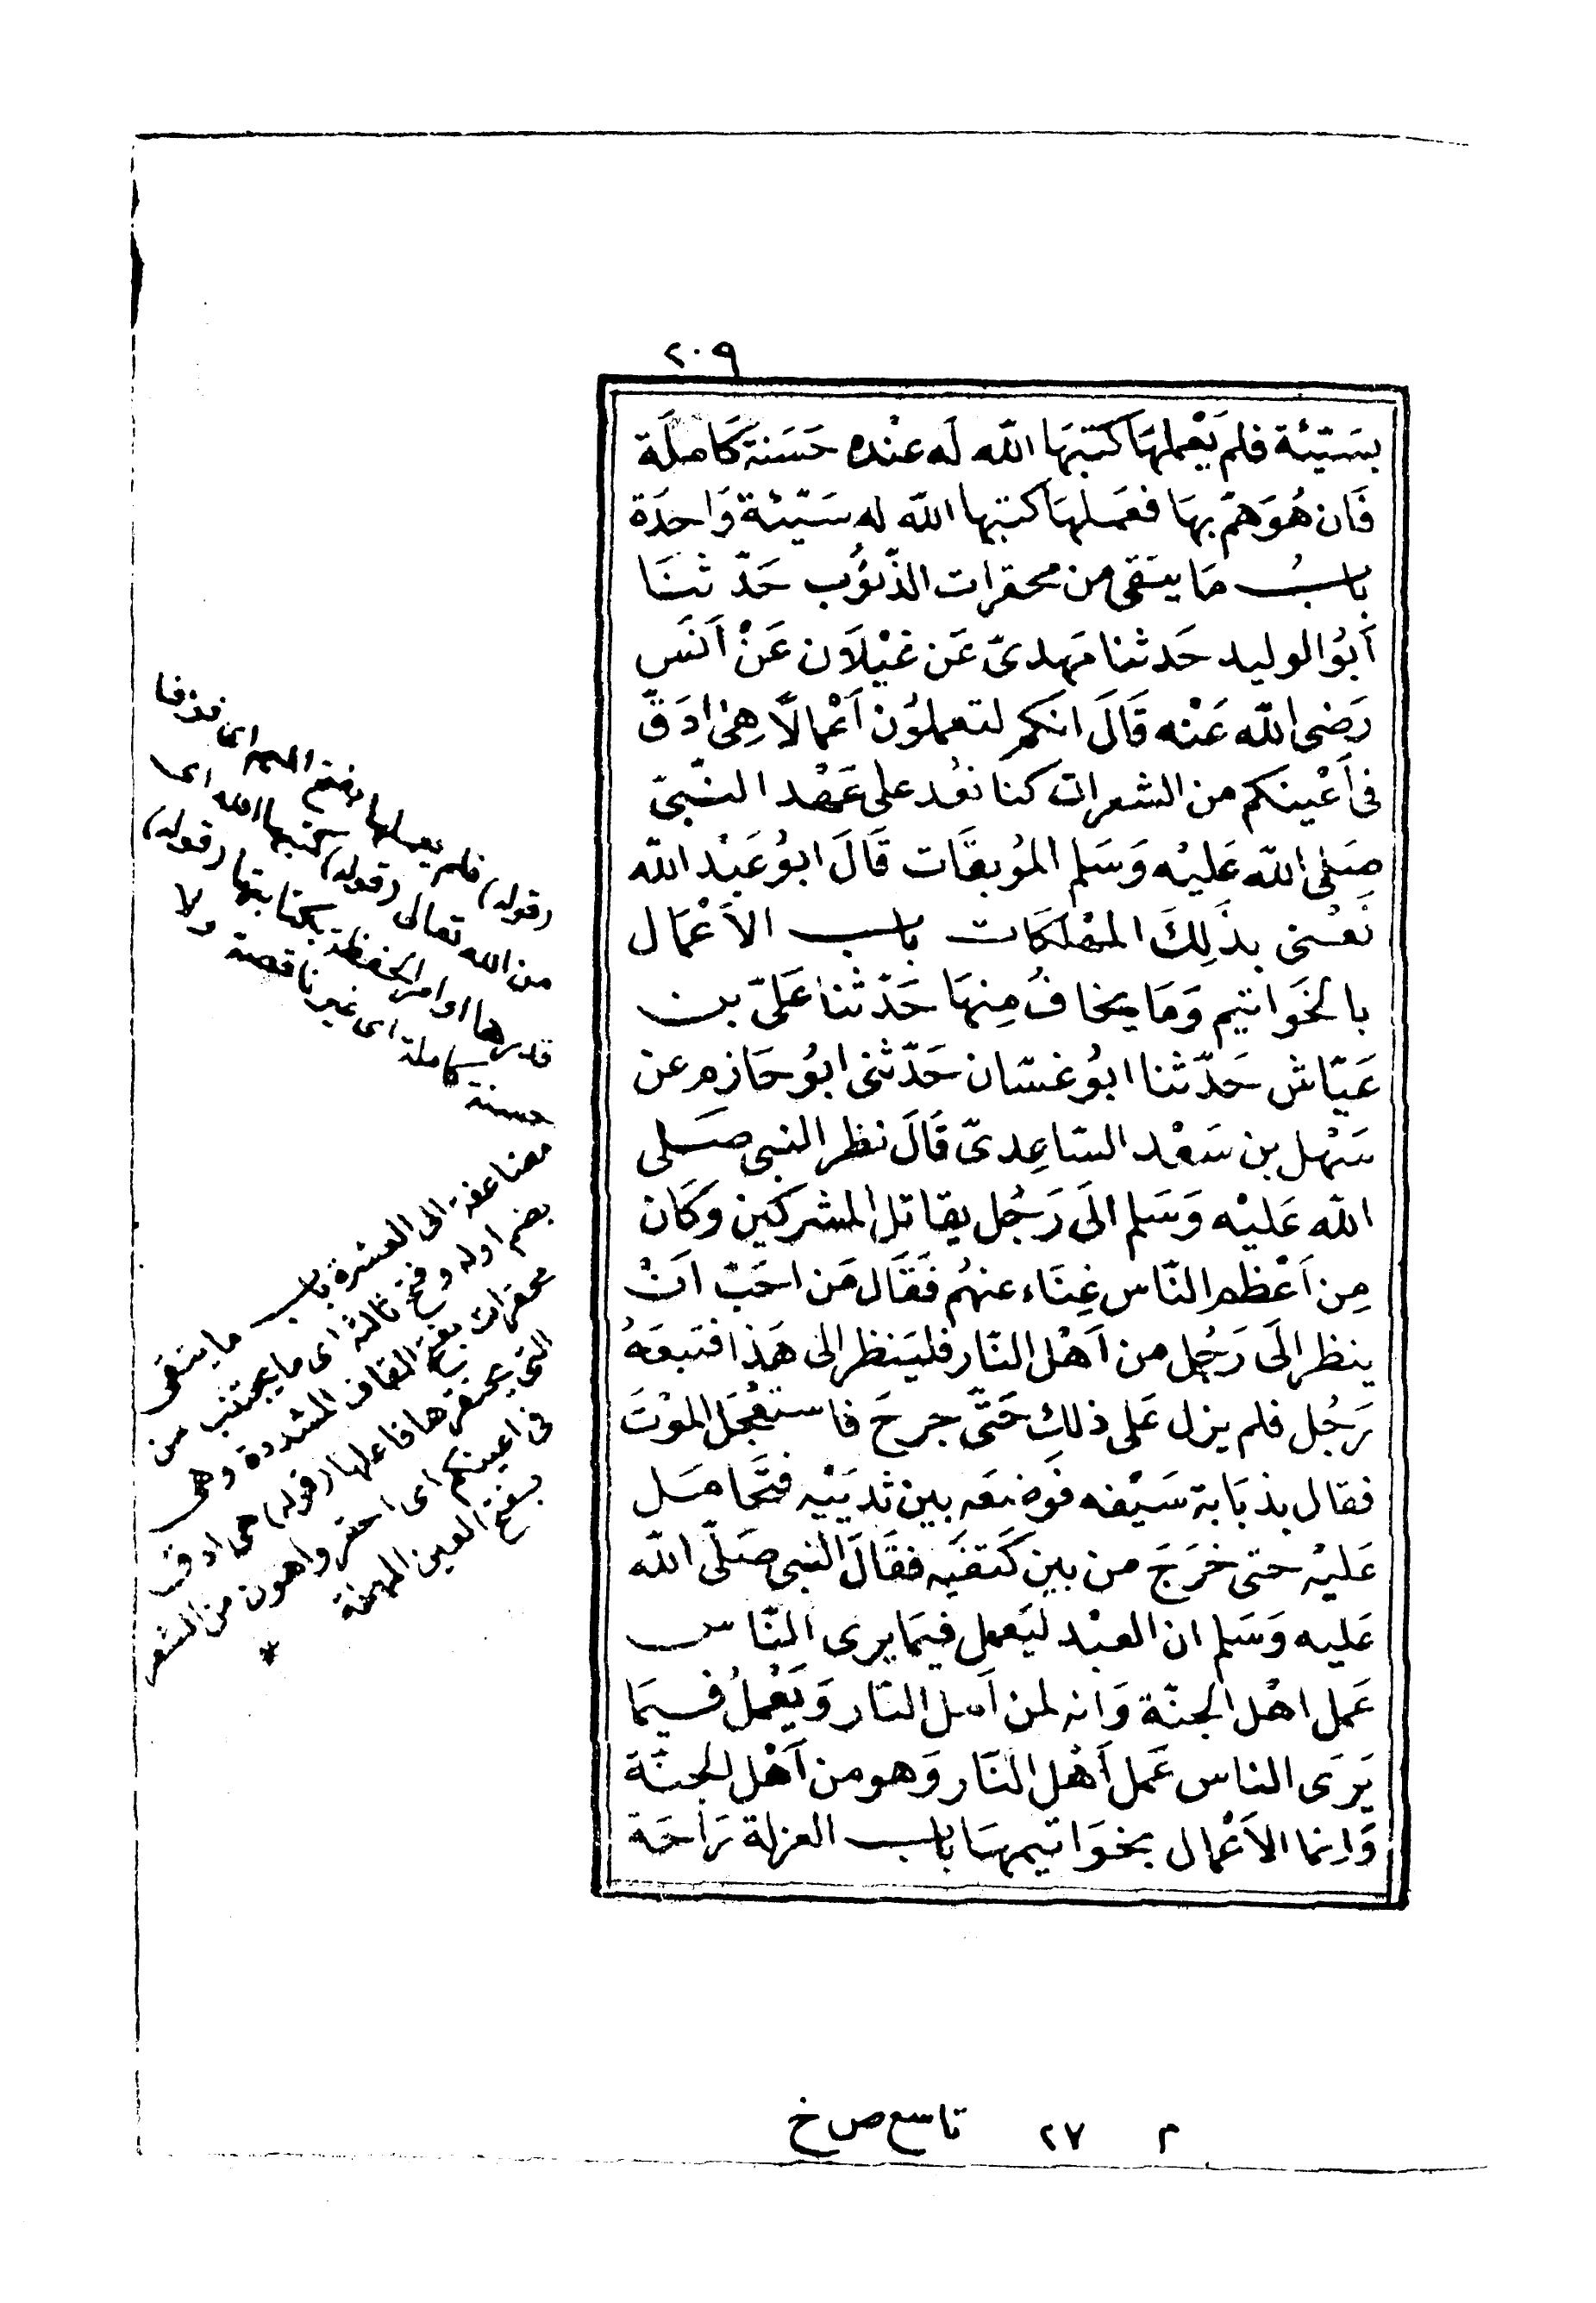 ٢٠٩
بسَيّئة فلم يَعْملهَا كَتبهَا الله لَه عنْده حَسَنة كَاملَة
فَان هُوَ هَمّ بهَا فعَملهَا كتبها الله له سَيّئة وَاحدَة
بابُ مَا يتقى من محقرات الذّنوُب حَدّثنَا
أبوُ الوليد حَدثنا مَهدىّ عَن غيْلَان عَنْ اَنَس
رَضى الله عَنْه قَالَ انكم لتعملوُن اَعْمالًا هىَ ادَقّ
فى أعْينكم من الشعرات كنا نعُد على عَهْد النّبىّ
صَلى الله عَليْه وَسَلم الموُبقَات قَالَ ابوُ عَبْد الله
نَعْنى بذَلِكَ المهْلكَات باب الاَعْمَال
بالخَوَاتيم وَمَا يخافُ مِنهَا حَدّثنا عَلىّ بن
عَيّاش حَدّثنا ابوُ غسّان حَدّثنى ابوُ حَازم عن
سَهْل بن سَعْد السّاعِدىّ قَالَ نظر النبى صَلى
الله عَليْه وَسَلم الَى رَجُل يقاتل المشركين وَكَان
مِن اَعْظم النّاس غِنَاء عنهُم فَقَال مَن احَبّ اَنْ
ينظر الَى رَجُل من اَهْل النّار فليَنظر الى هَذا فتبعَهُ
رَجُل فلم يزل عَلى ذلك حَتّى جرحَ فاستعْجَل الموْتَ
فقال بذبَابة سَيْفه فوَضعَه بين ثديَيْه فتَحَامَل
عَليْه حتى خرَجَ من بين كَتفيَه فقَالَ النبى صَلّى الله
عَليه وَسَلم ان العبْد ليَعمل فيمَا يرى النّاس
عَمل اهْل الجنّة وَانه لمن اَهل النّار وَيَعْملُ فيمَا
يَرَى الناس عَمل أهْل النّار وَهو من اَهْل الجنّة
وَانما الاَعْمال بخوَاتيمهَا باب العزلة رَاحَة
(قوله) فلم يعملها بفتح الميم اى خوفا
من الله تعالى (قوله) كتبها الله اى
قدرها او امر الحفظة بكتابتها (قوله)
حسنة كاملة اى غير ناقصة ولا
مضاعفة الى العشرة باب ما يتقى
بضم اوله وفتح ثالثه اى ما يجتنب من
محقرات بفتح القاف المشددة وهى
التى يحتقرها فاعلها (قوله) هى ادق
فى اعينكم اى احقر واهون من الشعر
بفتح العين المهملة *
م ٢٧ تاسع ص خ